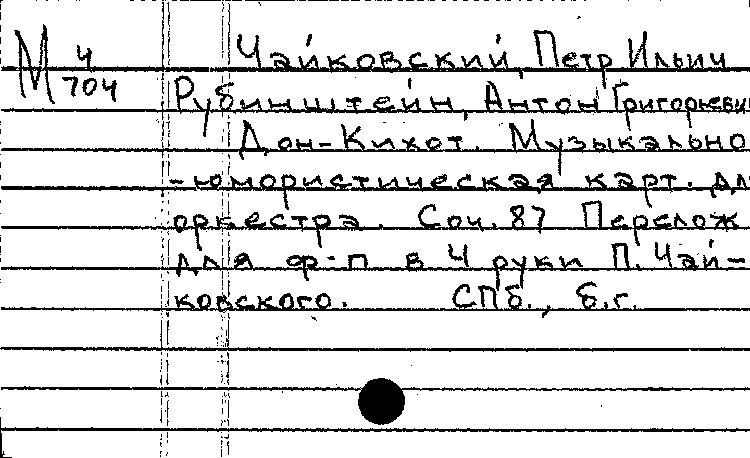 М 4
704
Чайковский, Петр Ильич
Рубинштейн, Антон Григорьевич
Дон-Кихот. Музыкально
-юмористическая карт. дл
оркестра. Соч. 87 Перелож
для ф-п в 4 руки П. Чай-
ковского. СПб., б.г.